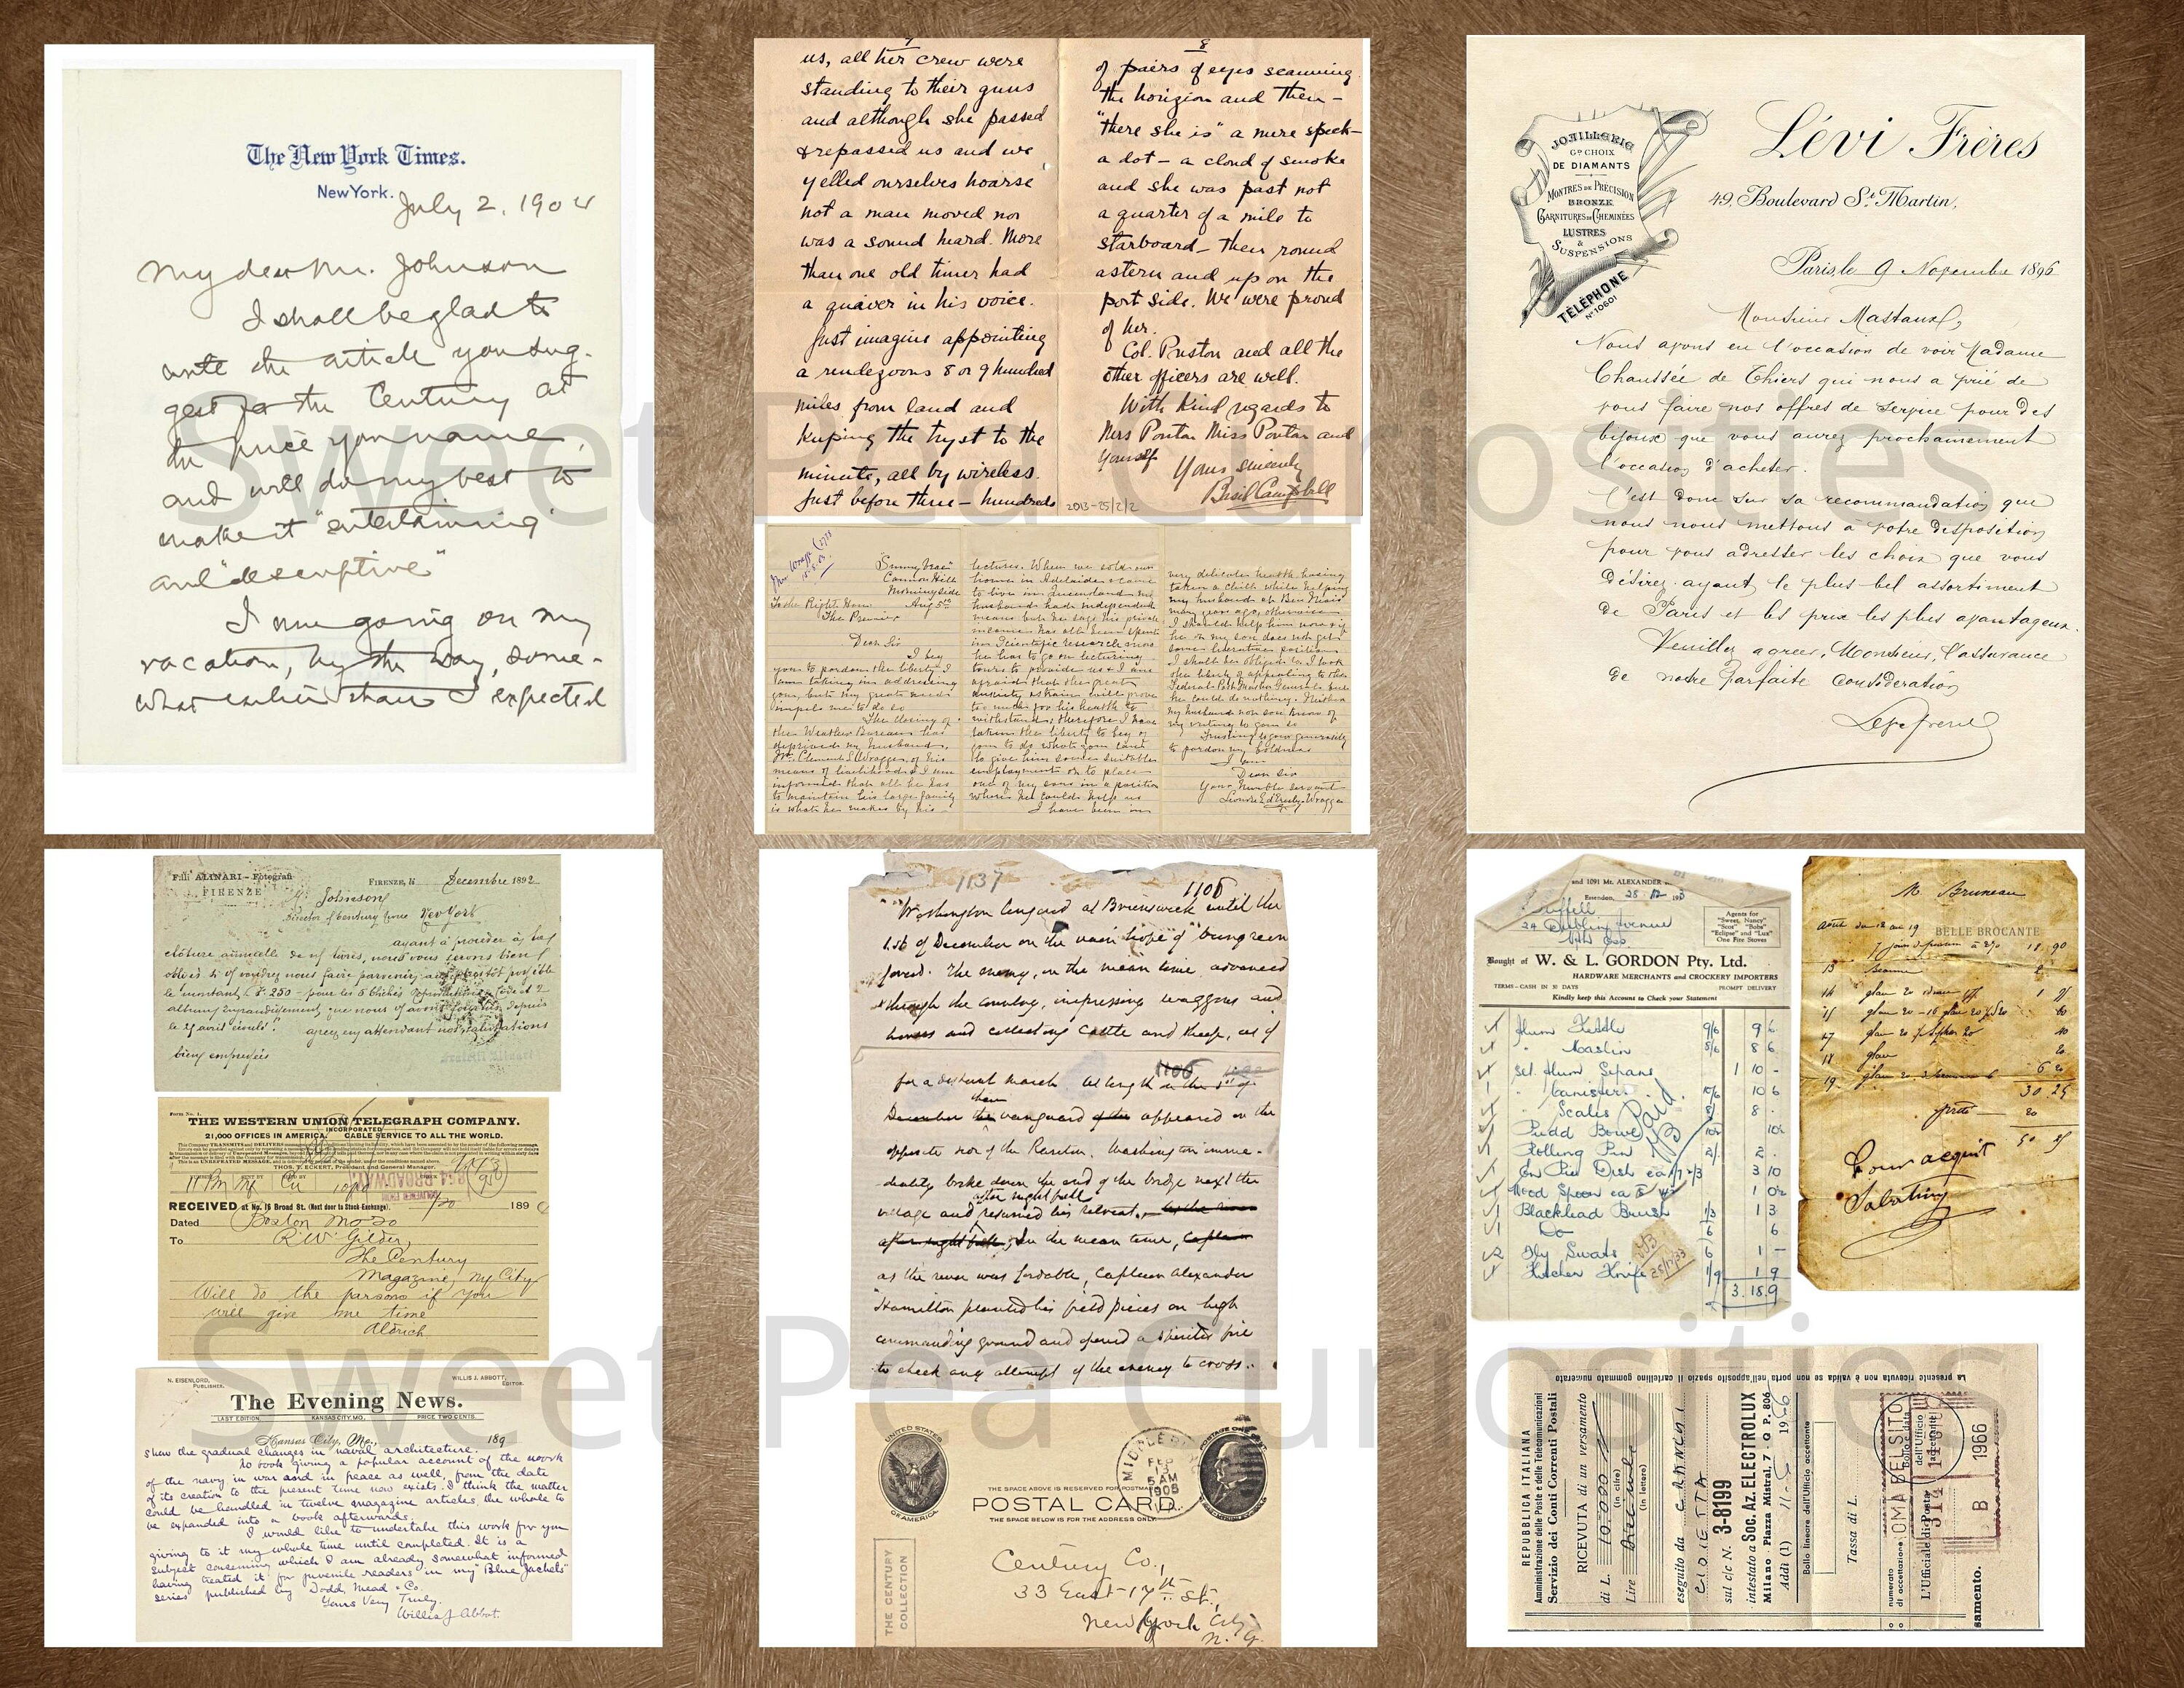 The New York Times.
New York.
July 2, 1904
My dear Mr. Johnson
I shall be glad to
write the article you sug-
gest for the Century at
the price you name,
and will do my best to
make it "entertaining"
and "descriptive"
I am going on my
vacation, by the way, some-
what earlier than I expected
7
us, all her crew were
standing to their guns
and although she passed
& repassed us and we
yelled ourselves hoarse
not a man moved nor
was a sound heard. More
than one old timer had
a quaver in his voice.
Just imagine appointing
a rendezvous 8 or 9 hundred
miles from land and
keeping the tryst to the
minute, all by wireless.
Just before three – hundreds
8
of pairs of eyes scanning
the horizon and then –
"there she is" a mere speck –
a dot – a cloud of smoke
and she was past not
a quarter of a mile to
starboard – then round
astern and up on the
port side. We were proud
of her.
Col. Preston and all the
other officers are well.
With kind regards to
Mrs Ponton Miss Ponton and
yourself
Yours sincerely
Basil Campbell
2013-25/2/2
Mrs Wragge
Cannon Hill
Morningside
Aug 5th
To the Right Hon
The Premier
Dear Sir
I beg
you to pardon the liberty I
am taking in addressing
you, but my great need
impels me to do so
The closing of
the Weather Bureau has
deprived my husband,
Mr. Clement L Wragge, of his
means of livelihood & I am
informed that all he has
to maintain his large family
is what he makes by his
lectures. When we sold our
home in Adelaide & came
to live in Queensland my
husband had independent
means but he says his private
income has all been spent
in Scientific research &
he has to go on lecturing
tours to provide us & I am
afraid that the great
anxiety & strain will prove
too much for his health to
withstand, therefore I have
taken the liberty to beg of
you to do what you can
to give him some suitable
employment or to place
one of my sons in a position
where he could help us
I have been in
very delicate health having
taken a chill while helping
my husband at Ben Nevis
many years ago, otherwise
I should help him now & if
he or my son does not get
some
I shall be obliged to I took
the liberty of appealing to the
Federal Post Master General but
he could do nothing. Neither
my husband nor son know of
my writing to you so
Trusting to your generosity
to pardon my boldness
I am
Dear Sir
Your humble servant
Leonore E d'Eresby Wragge
JOAILLERIE
Gd CHOIX
DE DIAMANTS
MONTRES DE PRÉCISION
BRONZE
GARNITURES DE CHEMINÉES
LUSTRES
&
SUSPENSIONS
TÉLÉPHONE
No 10601
Lévi Frères
49, Boulevard St. Martin.
Paris, le 9 Novembre 1896
Monsieur Mastaux,
Nous avons eu l'occasion de voir Madame
Chaussée de Thiers qui nous a prié de
vous faire nos offres de service pour des
bijoux que vous aurez prochainement
l'occasion d'acheter.
C'est donc sur sa recommandation que
nous nous mettons à votre disposition
pour vous adresser les choix que vous
désirez, ayant le plus bel assortiment
de Paris et les prix les plus avantageux.
Veuillez agréer, Monsieur, l'assurance
de notre parfaite considération
Levi freres
Flli ALINARI – Fotografi
FIRENZE
FIRENZE, li Decembre 1892
Mr Johnson
Director of Century
New York
ayant à proceder à la
clôture annuelle de nos livres, nous vous serons bien
obligés si voudrez nous faire parvenir, aussitôt possible
le montant, 250 – pour les 5 clichés
album agrandissement, que nous avons depuis
le 29 avril écoulé.
agreez en attendant nos salutations
bien empressés
Fratelli Alinari
Form No. 1.
THE WESTERN UNION TELEGRAPH COMPANY.
INCORPORATED
21,000 OFFICES IN AMERICA. CABLE SERVICE TO ALL THE WORLD.
THOS. T. ECKERT, President and General Manager.
RECEIVED at No. 16 Broad St. (Next door to Stock Exchange). 189
Dated Boston Mo 20
To R. W. Gilder,
The Century
Magazine, NY City
Will do the parsons if you
will give me time
Aldrich
N. EISENLORD,
PUBLISHER.
WILLIS J. ABBOTT,
EDITOR.
The Evening News.
LAST EDITION. KANSAS CITY, MO. PRICE TWO CENTS.
Kansas City, Mo., 189
show the gradual changes in naval architecture.
No book giving a popular account of the work
of the navy in war and in peace as well, from the date
of its creation to the present time now exists. I think the matter
could be handled in twelve magazine articles, the whole to
be expanded into a book afterwards.
I would like to undertake this work for you
giving to it my whole time until completed. It is a
subject concerning which I am already somewhat informed
having treated it for juvenile readers in my "Blue Jackets"
series published by Dodd, Mead & Co.
Yours Very Truly,
Willis J Abbot.
1137
1106
Washington lingered at Brunswick until the
1st of December on the vain hope of being reen
forced. The enemy, in the mean time, advanced
through the country, impressing waggons and
horses and collecting cattle and sheep, as if
1106
for a distant march. At length on the 1st of
December their vanguard appeared on the
opposite side of the Raritan. Washington imme-
diately broke down the end of the bridge next the
village and after nightfall resumed his retreat.
In the mean time,
as the river was fordable, Captain Alexander
Hamilton planted his field pieces on high
commanding ground and opened a spirited fire
to check any attempt of the enemy to cross.
UNITED STATES
OF AMERICA
MIDDLE
FEB
13
5 AM
1905
POSTAGE ONE CENT
THE SPACE ABOVE IS RESERVED FOR POSTMARK
POSTAL CARD.
THE SPACE BELOW IS FOR THE ADDRESS ONLY.
THE CENTURY
COLLECTION
Century Co.,
33 East-17th St.,
New York City
N. Y.
and 1091 Mt. ALEXANDER
Essendon, 28 12 193
24 Avenue
Agents for
"Sweet, Nancy"
"Scot" "Bobs"
"Eclipse" and "Lux"
One Fire Stoves
Bought of W. & L. GORDON Pty. Ltd.
HARDWARE MERCHANTS and CROCKERY IMPORTERS
TERMS – CASH IN 30 DAYS PROMPT DELIVERY
Kindly keep this Account to Check your Statement
Alum Kettle 9/6 9 6
" Maslin 8 6
Set Alum Sepans 1 10 -
" Canisters 10/6 10 6
" Scales 8/- 8 -
Pudd Bowl
Rolling Pin 2/- 2 -
En Pie Dish ea 3 10
Wood Spoon ea
Blackhead Brush 1/3 1 3
Do 6 6
2 Fly Swats 6 1 -
Kitchen Knife 1/9 1 9
3. 18. 9
Paid
28/12/33
M Bruneau
BELLE BROCANTE
18 90
13
14
15
17
18 glace
19
30 25
50 25
Pour acquit
REPUBBLICA ITALIANA
Amministrazione delle Poste e delle Telecomunicazioni
Servizio dei Conti Correnti Postali
RICEVUTA di un versamento
di L. 10.000
(in cifre)
Lire
(in lettere)
eseguito da
sul c/c N. 3-8199
intestato a Soc. Az. ELECTROLUX
Milano - Piazza Mistral, 7 - Q P. 806
Addì (1) 11-5 1966
Bollo lineare dell'Ufficio accettante
Tassa di L.
numerato
di accettazione
L'Ufficiale di Posta
Bollo a data
dell'Ufficio
accettante
1966
B
samento.
La presente ricevuta non è valida se non porta nell'apposito spazio il cartellino gommato numerato
Sweet Pea Curiosities
Sweet Pea Curiosities